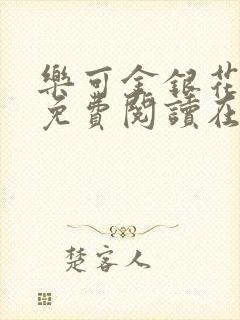 樂可金銀花
免費閱讀在
楚客人